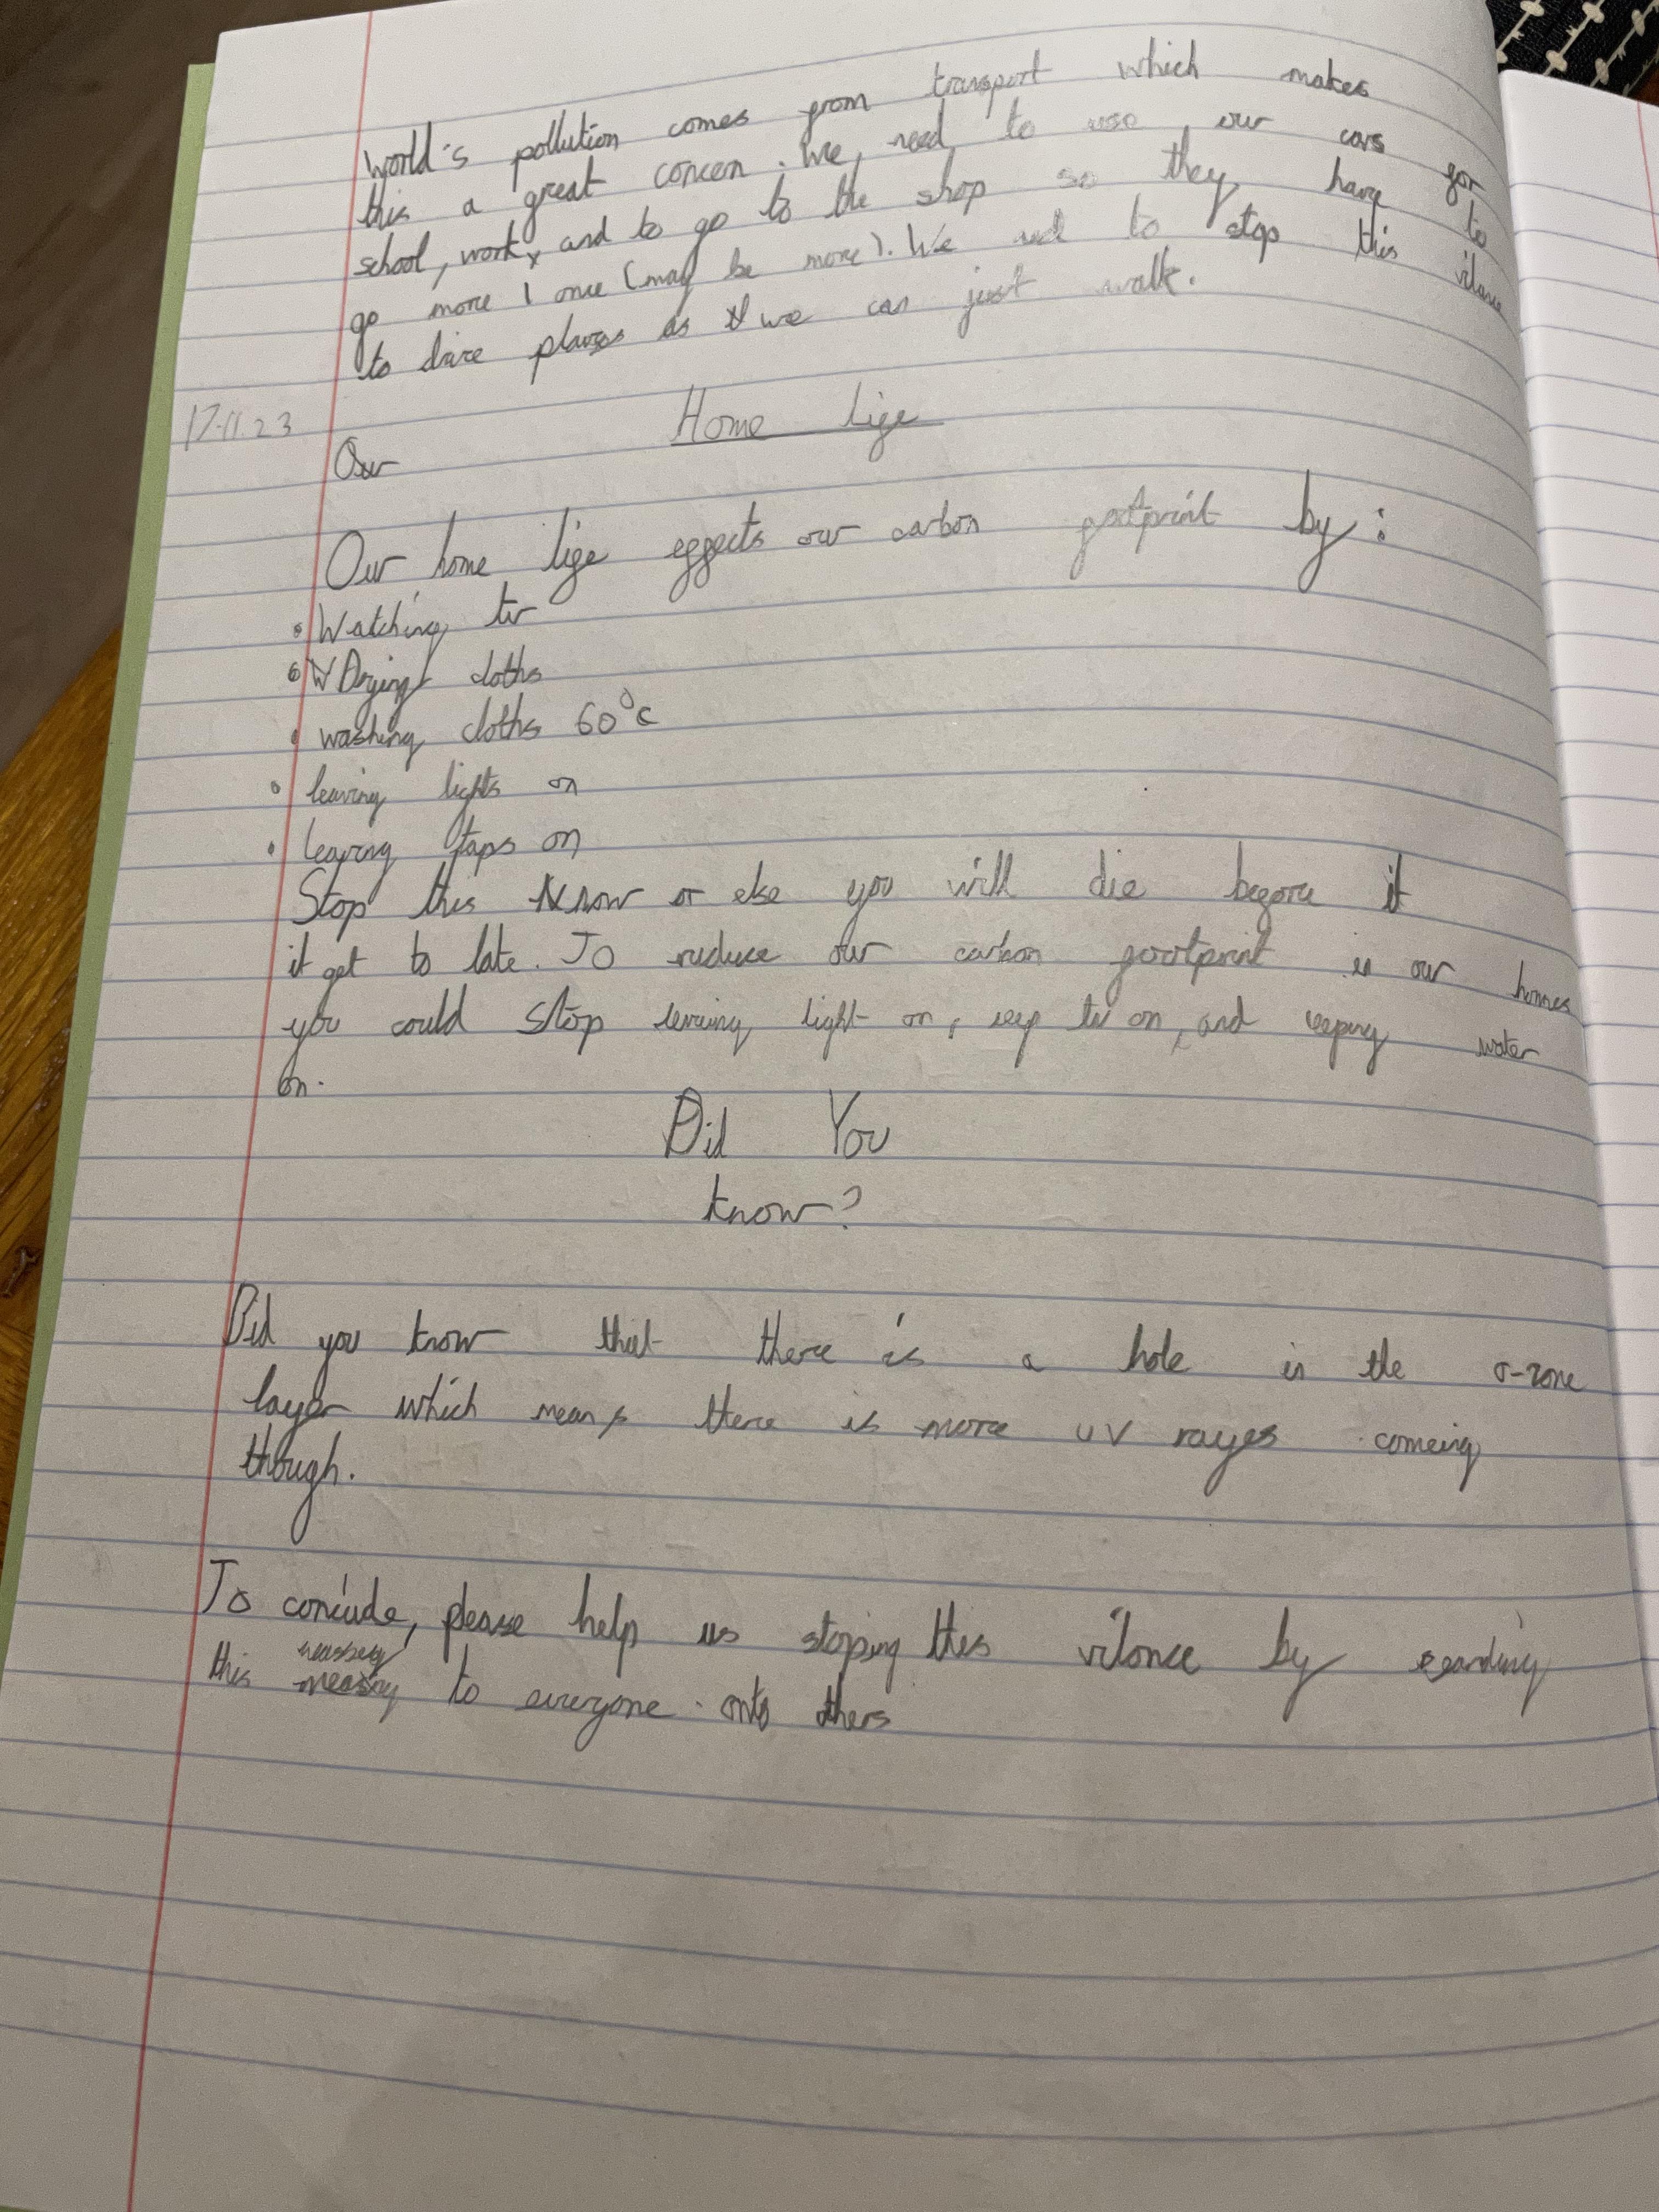 world's pollution comes from transport which makes
this a great concern. We need to use our cars for
school, work, and to go to the shop so they have to
go more 1 once (may be more). We need to stop this vilance
to drive places as we can just walk.
17.11.23
Home life
Our
Our home life effects our carbon footprint by:
• Watching tv
• Drying cloths
• washing cloths 60°c
• leaving lights on
• leaving taps on
Stop this now or else you will die before it
it get to late. To reduce our carbon footprint in our homes
you could stop leaving light on, keep tv on, and keeping water
on.
Did You
know?
Did you know that there is a hole in the o-zone
layer which means there is more UV rayes comeing
though.
To conclude, please help us stoping this vilonce by
this to everyone. onto others